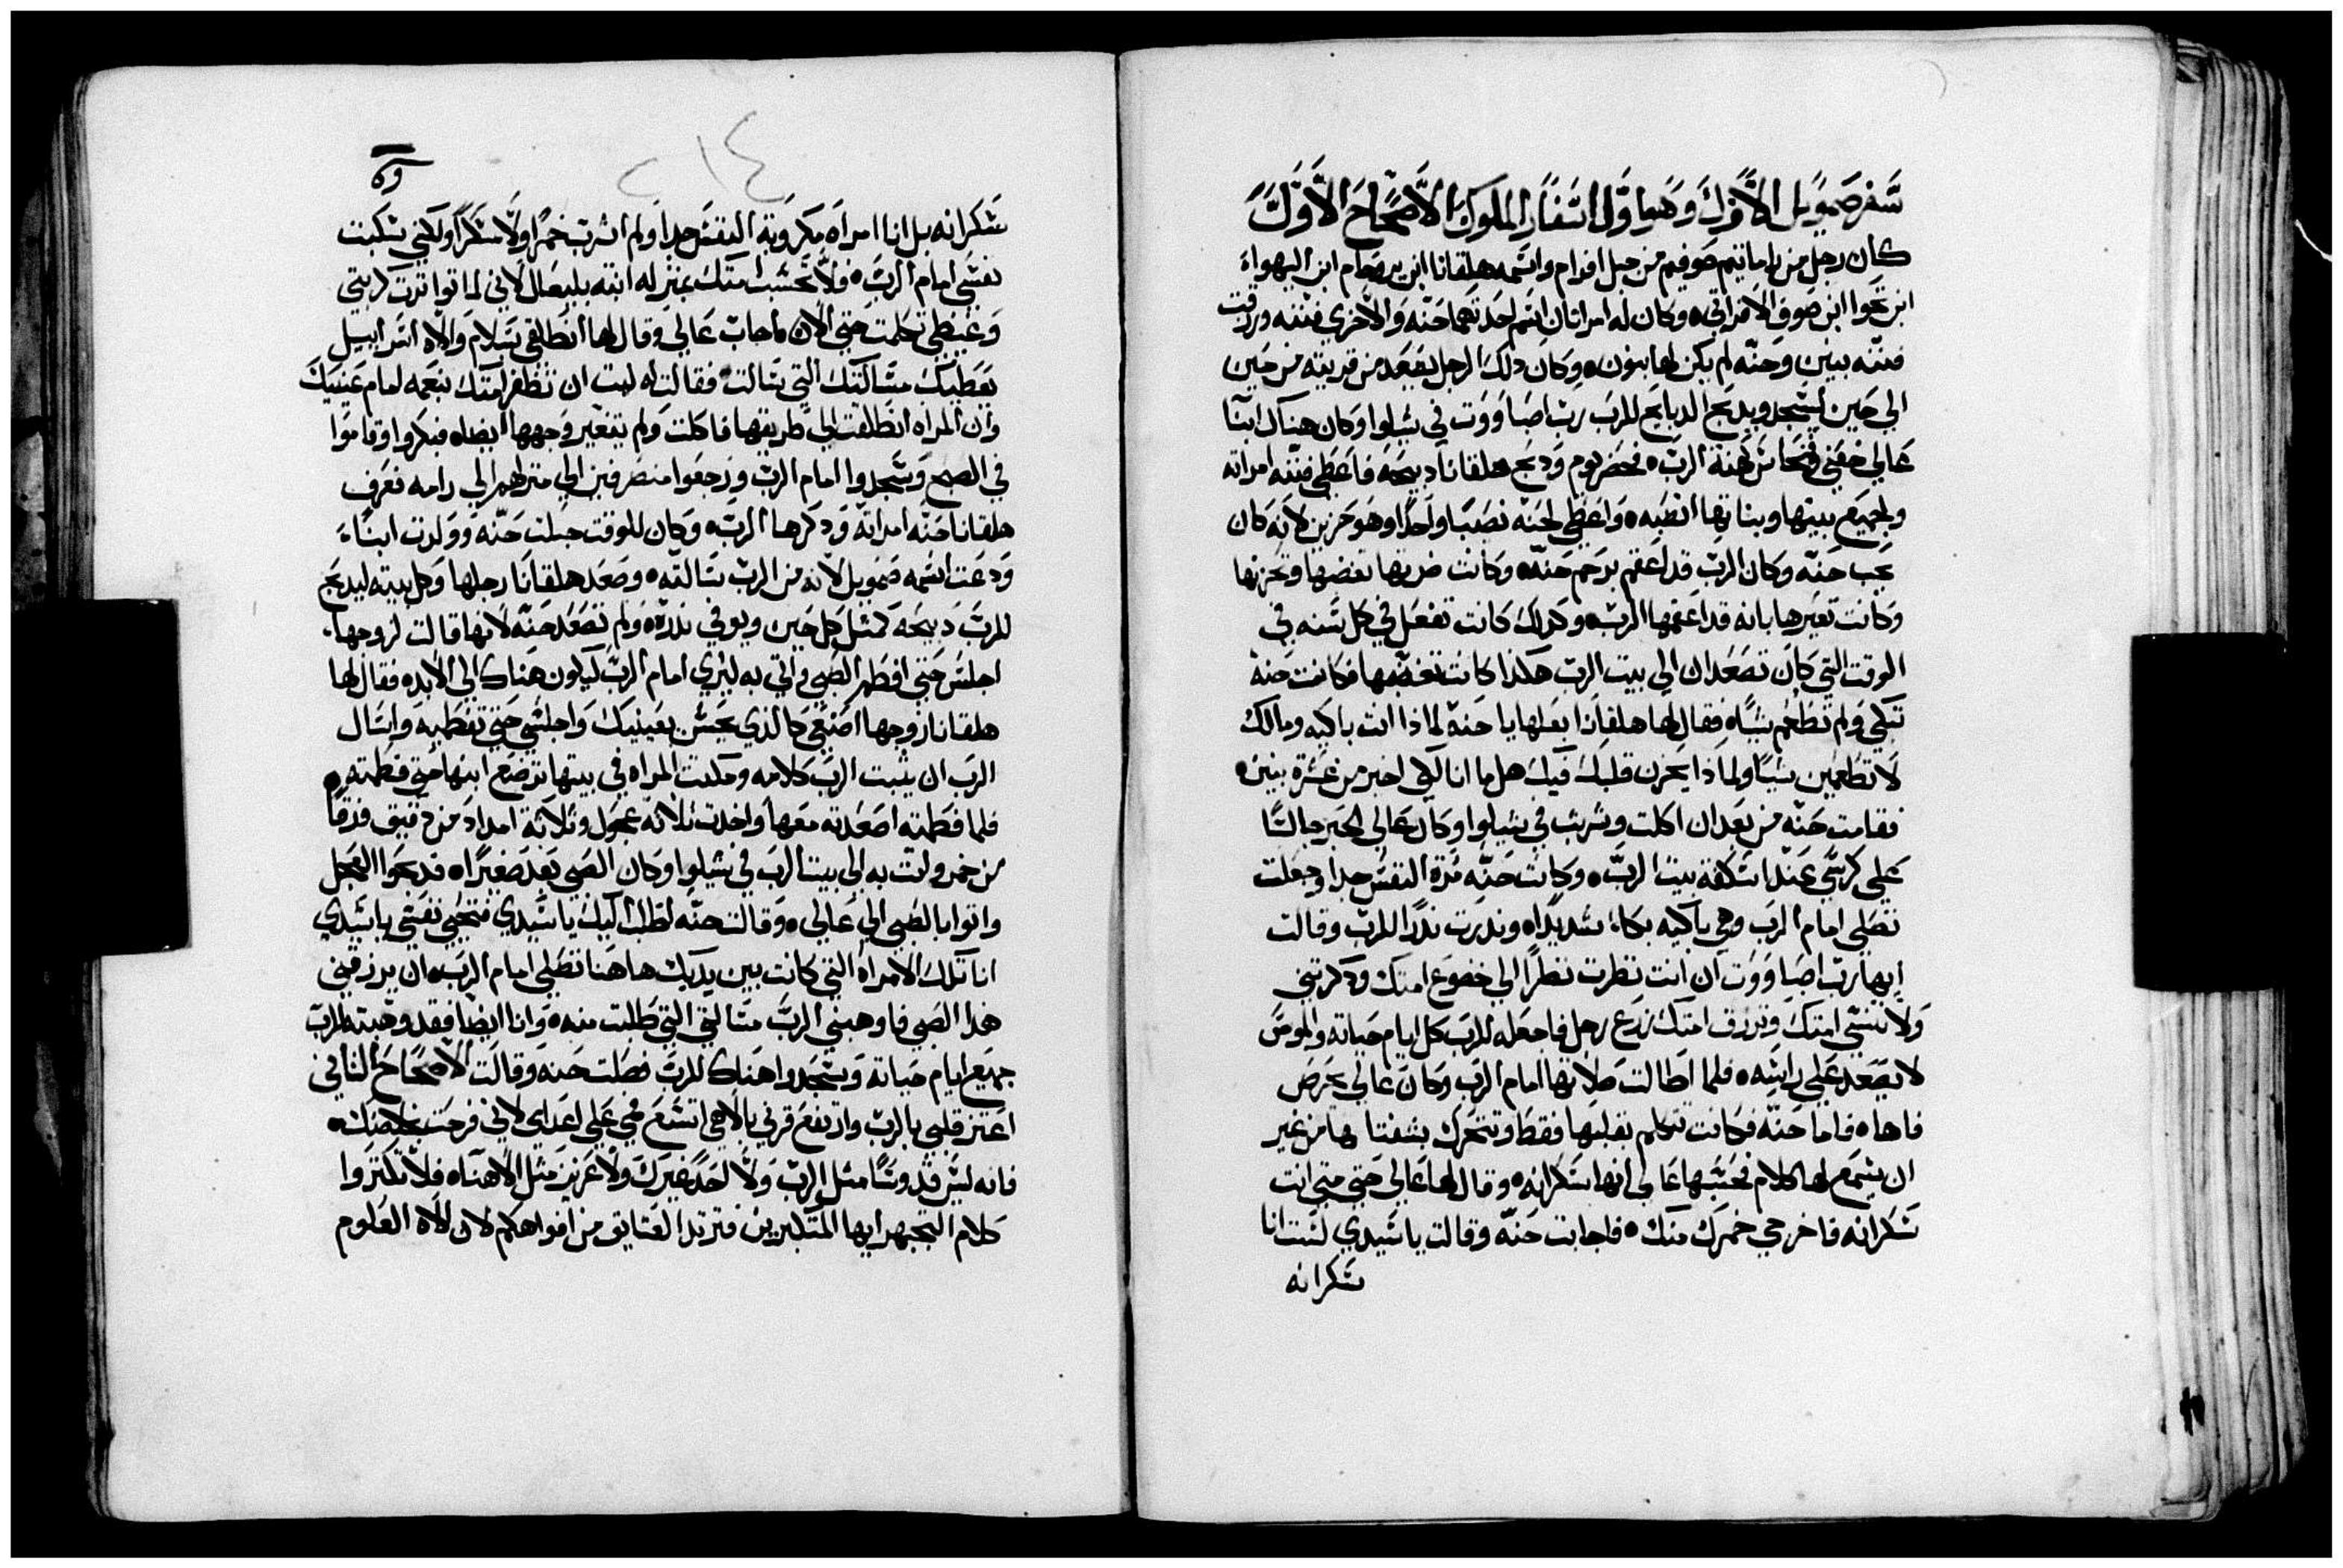 سفر صمويل الاول وهو اول اسفار الملوك الاصحاح الاول
كان رجل من راماتيم صوفيم من جبل افرام واسمه هلقانا ابن يروحام ابن اليهوا
ابن تحوا ابن صوف الافراتي ه وكان له امراتان اسم احدتهما حنه والاخرى فننه ورزقت
فننه بنين وحنه لم يكن لها بنون ه وكان دلك الرجل يصعد من قريته من حين
الي حين ليسجد ويدبح الدبايح للرب رب اصباووت في شيلوا وكان هناك ابنا
عالي حفني وفنحاس كهنة الرب ه فحضر يوم ودبح هلقانا دبيحه فاعطي فننه امراته
ولجميع بنيها وبناتها انصبه ه واعطي لحنه نصيبا واحدا وهو حزين لانه كان
يحب حنه وكان الرب قد اعقم برحم حنه ه وكانت ضرتها تغضبها وتحزنها
وكانت تعيرها بانه قد اعقمها الرب ه وكدلك كانت تفعل في كل سنه في
الوقت التي كان تصعدان الي بيت الرب هكذا كانت تغضبها فكانت حنه
تبكي ولم تطعم شياه فقال لها هلقانا بعلها يا حنه لماذا انت باكيه ومالك
لا تطعمين شيا ولماذا يحزن قلبك فيك هل ما انا لكي اخير من عشرة بنين ه
فقامت حنه من بعد ان اكلت وشربت في شيلوا وكان عالي الحبر جالسا
علي كرسي عند اسكفة بيت الرب ه وكانت حنه مرة النفس جدا وجعلت
تصلي امام الرب وهي باكيه بكاء شديدا ه وندرت ندرا للرب وقالت
ايها رب اصباووت ان انت نظرت نظرا الي خضوع امتك ودكرتني
ولا تنسي امتك وترزق امتك زرع رجل فاجعله للرب كل ايام حياته والموس
لا يصعد علي راسه ه فلما اطالت صلاتها امام الرب وكان عالي يحرص
فاها ه فاما حنه فكانت تتكلم بقلبها فقط وتتحرك بشفتاها من غير
ان يسمع لها كلام فحسبها عالي انها سكرانه ه وقال لها عالي حتي متي انت
سكرانه فاخرجي خمرك منك ه فاجابت حنه وقالت يا سيدي لست انا
سكرانه
٢١٤
سكرانه بل انا امراه مكروبة النفس جدا ولم اشرب خمرا ولا سكرا ولكني سكبت
نفسي امام الرب ه فلا تحسب امتك بمنزله ابنه بليعال لاني لما تواترت كربتي
وغيظي تكلمت حتي الان فاجاب عالي وقال لها انطلقي بسلام والاه اسراييل
يعطيك مسالتك التي سالت فقالت له ليت ان تظفر امتك بنعمه امام عينيك
وان المراه انطلقت الي طريقها فاكلت ولم يتغير وجهها ايضا ه فبكروا وقاموا
في الصبح وسجدوا امام الرب ورجعوا منصرفين الي منزلهم الي رامه فعرف
هلقانا حنه امراته ودكرها الرب ه وكان للوقت حبلت حنه وولدت ابنا
ودعت اسمه صمويل لانه من الرب سالته ه وصعد هلقانا رجلها وكل بيته ليدبح
للرب دبيحه كمثل كل حين ويوفي ندره ه ولم تصعد حنه لانها قالت لزوجها
اجلس حتي افطم الصبي واتي به ليري امام الرب ليكون هناك الي الابد ه فقال لها
هلقانا زوجها اصنعي كالذي يحسن بعينيك واجلسي حتي تفطميه واسال
الرب ان يثبت الرب كلامه ومكثت المراه في بيتها ترضع ابنها حتي فطمته ه
فلما فطمته اصعدته معها واخدت ثلاثه عجول وثلاثة امداد من دقيق وزقا
من خمر واتت به الي بيت الرب في شيلوا وكان الصبي بعد صغيرا ه فدبحوا العجل
واتوا بالصبي الي عالي ه وقالت حنه اطلب اليك يا سيدي فتحيي نفسي يا سيدي
انا تلك الامراه التي كانت بين يديك هاهنا تصلي امام الرب ه ان يرزقني
هدا الصبي فاوهبني الرب مسالتي التي طلبت منه ه وانا ايضا فقد وهبته للرب
جميع ايام حياته وسجدوا هناك للرب فصلت حنه وقالت الاصحاح الثاني
اعتز قلبي بالرب وارتفع قرني بالاهي اتسع فمي علي اعداي لاني فرحت بخلاصك ه
فانه ليس قدوسا مثل الرب ولا احد غيرك ولا عزيز مثل الاهنا ه فلا تكثروا
كلام التجبر ايها المتكبرين فترتدا العتايق من افواهكم لان الاه العلوم